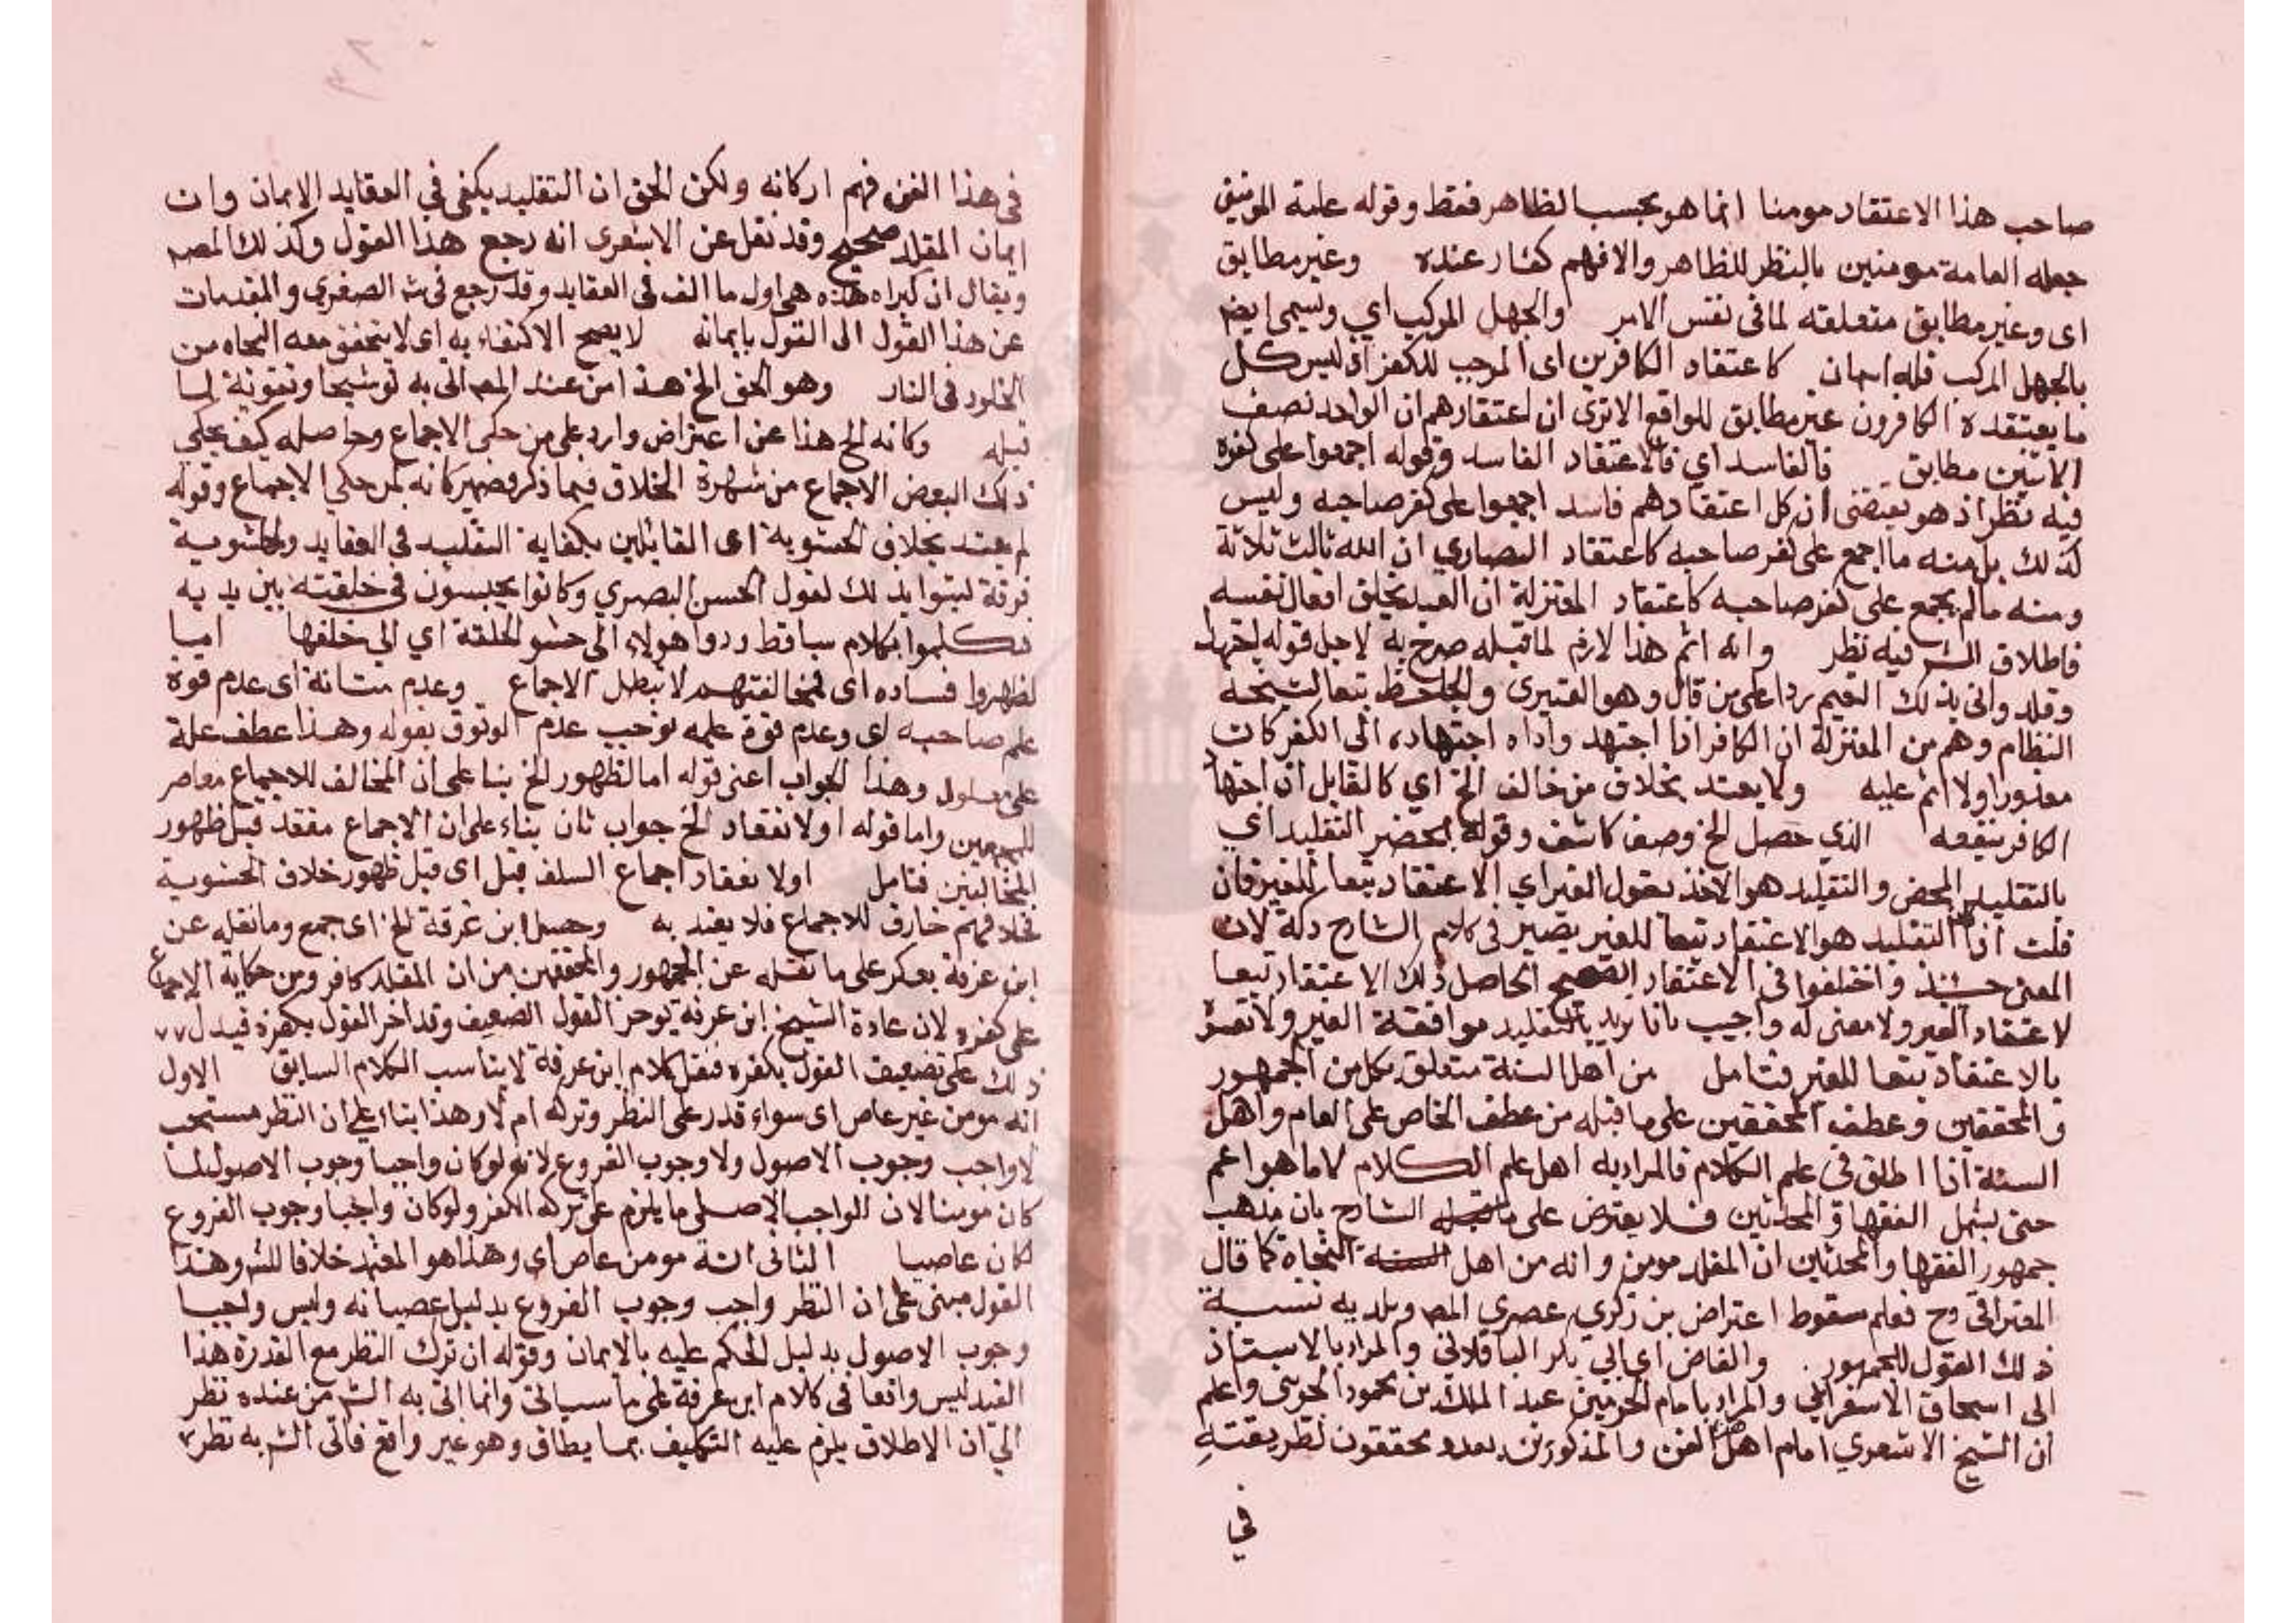 صاحب هذا الاعتقاد مومنا انما هو بحسب الظاهر فقط وقوله علية المومنين
جعله العامة مومنين بالنظر للظاهر والا فهم كفار عنده وغير مطابق
اى وغير مطابق متعلقه لما فى نفس الامر والجهل المركب اي ويسمى ايضا
بالجهل المركب فله اسمان كاعتقاد الكافرين اى الموجب للكفر اذ ليس كل
ما يعتقده الكافرون غير مطابق للواقع الا ترى ان اعتقادهم ان الواحد نصف
الاثنين مطابق فالفاسد اي فالاعتقاد الفاسد وقوله اجمعوا على كفره
فيه نظر اذ هو يقتضى ان كل اعتقادهم فاسد اجمعوا على كفر صاحبه وليس
كذلك بل منه ما اجمع على كفر صاحبه كاعتقاد النصاري ان الله ثالث ثلاثة
ومنه ما لم يجمع على كفر صاحبه كاعتقاد المعتزلة ان العبد يخلق افعال نفسه
فاطلاق الش فيه نظر وانه اثم هذا لازم لما قبله صرح به لاجل قوله اجتهد
وقلد واتى بذلك التعميم ردا على من قال وهو العنبرى والجاحظ تبعا لشيخه
النظام وهم من المعتزلة ان الكافر اذا اجتهد واداه اجتهاده الى الكفر كان
معذورا ولا اثم عليه ولا يعتد بخلاف من خالف الخ اي كالقايل ان اجتهاد
الكافر ينفعه الذي حصل الخ وصف كاشف وقوله بمحض التقليد اي
بالتقليد المحض والتقليد هو الاخذ بقول الغير اي الاعتقاد تبعا للغير فان
قلت اذا كان التقليد هو الاعتقاد تبعا للغير يصير فى كلام الشارح ركة لان
المعنى حينئذ واختلفوا فى الاعتقاد الصحيح الحاصل ذلك الاعتقاد تبعا
لاعتقاد الغير ولا معنى له واجيب بانا نريد بالتقليد موافقة الغير ولا نفسره
بالاعتقاد تبعا للغير فتامل من اهل السنة متعلق بكل من الجمهور
والمحققين وعطف المحققين على ما قبله من عطف الخاص على العام واهل
السنة اذا اطلق فى علم الكلام فالمراد به اهل علم الكلام لا ما هو اعم
حتى يشمل الفقها والمحدثين فلا يعترض على ما نقله الشارح بان مذهب
جمهور الفقها والمحدثين ان المقلد مومن وانه من اهل النجاة كما قال
القرافى وح فعلم سقوط اعتراض بن زكري عصري المص وبلديه نسبة
ذلك القول للجمهور . والقاضى اي ابي بكر الباقلاني والمراد بالاستاذ
ابى اسحاق الاسفرايني والمراد بامام الحرمين عبد الملك بن محمود الجويني واعلم
ان الشيخ الاشعري امام اهل هذا الفن والمذكورين بعده محققون لطريقته
في
فى هذا الفن فهم اركانه ولكن الحق ان التقليد يكفى في العقايد الايمان وان
ايمان المقلد صحيح وقد نقل عن الاشعرى انه رجع هذا القول وكذلك المص
ويقال ان كبراه هذه هى اول ما الف فى العقايد وقد رجع فى ش الصغري والمقدمات
عن هذا القول الى القول بايمانه لا يصح الاكتفاء به اى لا يتحقق معه النجاه من
الخلود فى النار وهو الحق الخ هذا من عند المص اتى به توشيحا وتقوية لما
قبله وكانه الخ هذا عن اعتراض وارد على من حكى الاجماع وحاصله كيف يحكى
ذلك البعض الاجماع من شهرة الخلاف فيما ذكر فضمير كانه لمن حكى الاجماع وقوله
لم يعتد بخلاف الحشوية اى القائلين بكفاية التقليد في العقايد والحشوية
فرقة لبثوا بذلك لقول الحسن البصري وكانوا يجلسون فى حلقته بين يديه
فتكلموا بكلام ساقط ردوا هولاء الى حشو الحلقة اي الى خلفها اما
لظهور فساده اى فمخالفتهم لا تبطل الاجماع وعدم متانة اى عدم قوة
علم صاحبه اى وعدم قوة علمه توجب عدم الوثوق بقوله وهذا عطف علة
على معلول وهذا الجواب اعنى قوله اما لظهور الخ بنا على ان المخالف للاجماع معاصر
للمجمعين واما قوله اولا نعقاد الخ جواب ثان بناء على ان الاجماع منعقد قبل ظهور
المخالفين فتامل اولا نعقاد اجماع السلف قبل اى قبل ظهور خلاف الحشوية
فخلافهم خارق للاجماع فلا يعتد به وحصل ابن عرفة الخ اى جمع وما نقله عن
ابن عرفة يعكر على ما نقله عن الجمهور والمحققين من ان المقلد كافر ومن حكاية الاجماع
على كفره لان عادة الشيخ ابن عرفة يوخر القول الضعيف وقد اخر القول بكفره فيدل
ذلك على تضعيف القول بكفره فنقل كلام ابن عرفة لا يناسب الكلام السابق الاول
انه مومن غير عاص اى سواء قدر على النظر وتركه ام لا وهذا بناء على ان النظر مستحب
لا واجب وجوب الاصول ولا وجوب الفروع لانه لو كان واجبا وجوب الاصول لما
كان مومنا لان الواجب الاصلى ما يلزم على تركه الكفر ولو كان واجبا وجوب الفروع
لكان عاصيا الثانى انه مومن عاص اى وهذا هو المعتمد خلافا للش وهذا
القول مبنى على ان النظر واجب وجوب الفروع بدليل عصيانه وليس واجبا
وجوب الاصول بدليل الحكم عليه بالايمان وقوله ان ترك النظر مع القدرة هذا
القيد ليس واقعا فى كلام ابن عرفة على ما سياتى وانما اتى به الش من عنده نظر
الي ان الاطلاق يلزم عليه التكليف بما يطاق وهو غير واقع فاتى الش به نظر